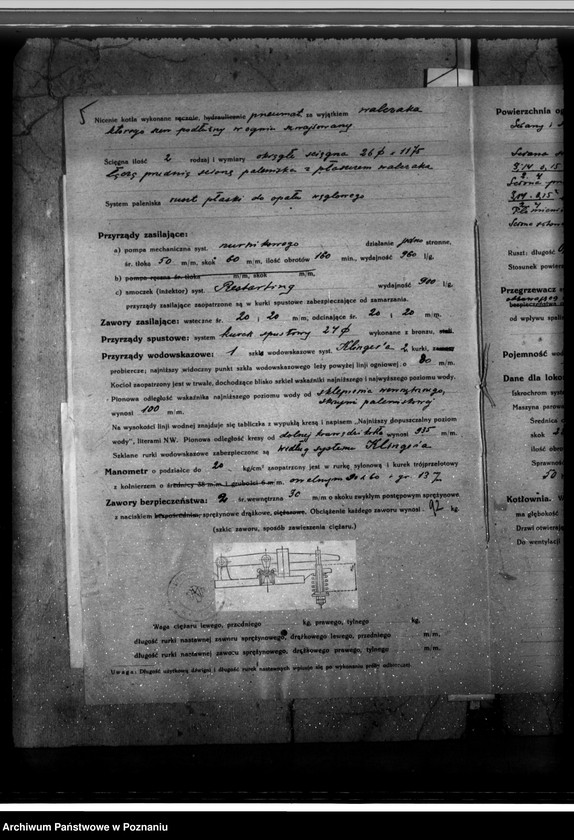 5 Nicenie kotła wykonane ręcznie, hydraulicznie pneumat za wyjątkiem walczaka
którego szew podłużny w ogniu
Ścięgna ilość 2 rodzaj i wymiary okrągłe ścięgna 26 φ × 1175
łączą przednią ścianę paleniska z płaszczem walczaka
System paleniska ruszt płaski do opału węglowego
Przyrządy zasilające:
a) pompa mechaniczna syst. działanie jedno stronne,
śr. tłoka 50 m/m, skok 60 m/m, ilość obrotów 160 min., wydajność 960 l/g,
b) pompa ręczna śr. tłoka m/m, skok m/m,
c) smoczek (inżektor) syst. Restarting wydajność 900 l/g,
przyrządy zasilające zaopatrzone są w kurki spustowe zabezpieczające od zamarzania.
Zawory zasilające: wsteczne śr. 20 i 20 m/m, odcinające śr. 20 i 20 m/m.
Przyrządy spustowe: system kurek spustowy 27 φ wykonane z bronzu,
Przyrządy wodowskazowe: 1 szkło wodowskazowe syst. Klinger'a 2 kurki,
probiercze; najniższy widoczny punkt szkła wodowskazowego leży powyżej linji ogniowej o 80 m/m.
Kocioł zaopatrzony jest w trwałe, dochodzące blisko szkieł wskaźniki najniższego i najwyższego poziomu wody.
Pionowa odległość wskaźnika najniższego poziomu wody od sklepienia wewnętrznego,
skrzyni paleniskowej
wynosi 100 m/m.
Na wysokości linji wodnej znajduje się tabliczka z wypukłą kresą i napisem „Najniższy dopuszczalny poziom
wody”, literami N.W. Pionowa odległość kresy od dolnej krawędzi kotła wynosi 935 m/m.
Szklane rurki wodowskazowe zabezpieczone są według systemu Klinger'a
Manometr o podziałce do 20 kg/cm² zaopatrzony jest w rurkę syfonową i kurek trójprzelotowy
z kołnierzem o średnicy 38 m/m i grubości 6 m/m. owalnym 60 i gr 13
Zawory bezpieczeństwa: 2 śr. wewnętrzna 30 m/m o skoku zwykłym postępowym sprężynowe
z naciskiem bezpośrednim, sprężynowe drążkowe, ciężarowe. Obciążenie każdego zaworu wynosi 92 kg.
(szkic zaworu, sposób zawieszenia ciężaru.)
Waga ciężaru lewego, przedniego kg, prawego, tylnego kg.
długość rurki nastawnej zaworu sprężynowego, drążkowego lewego, przedniego m/m.
długość rurki nastawnej zaworu sprężynowego, drążkowego prawego, tylnego m/m.
Uwaga: Długość użytkową dźwigni i długość rurek nastawnych wpisuje się po wykonaniu próby odbiorczej.
Powierzchnia og
Ściany i
Ruszt: długość
Stosunek powier
Przegrzewacz
od wpływu spali
Pojemność wod
Dane dla loko
Iskrochron syst
Maszyna parow
Średnica
skok
ilość obro
Sprawnoś
50
Kotłownia.
ma głębokość
Drzwi otwierają
Do wentylacji
Archiwum Państwowe w Poznaniu